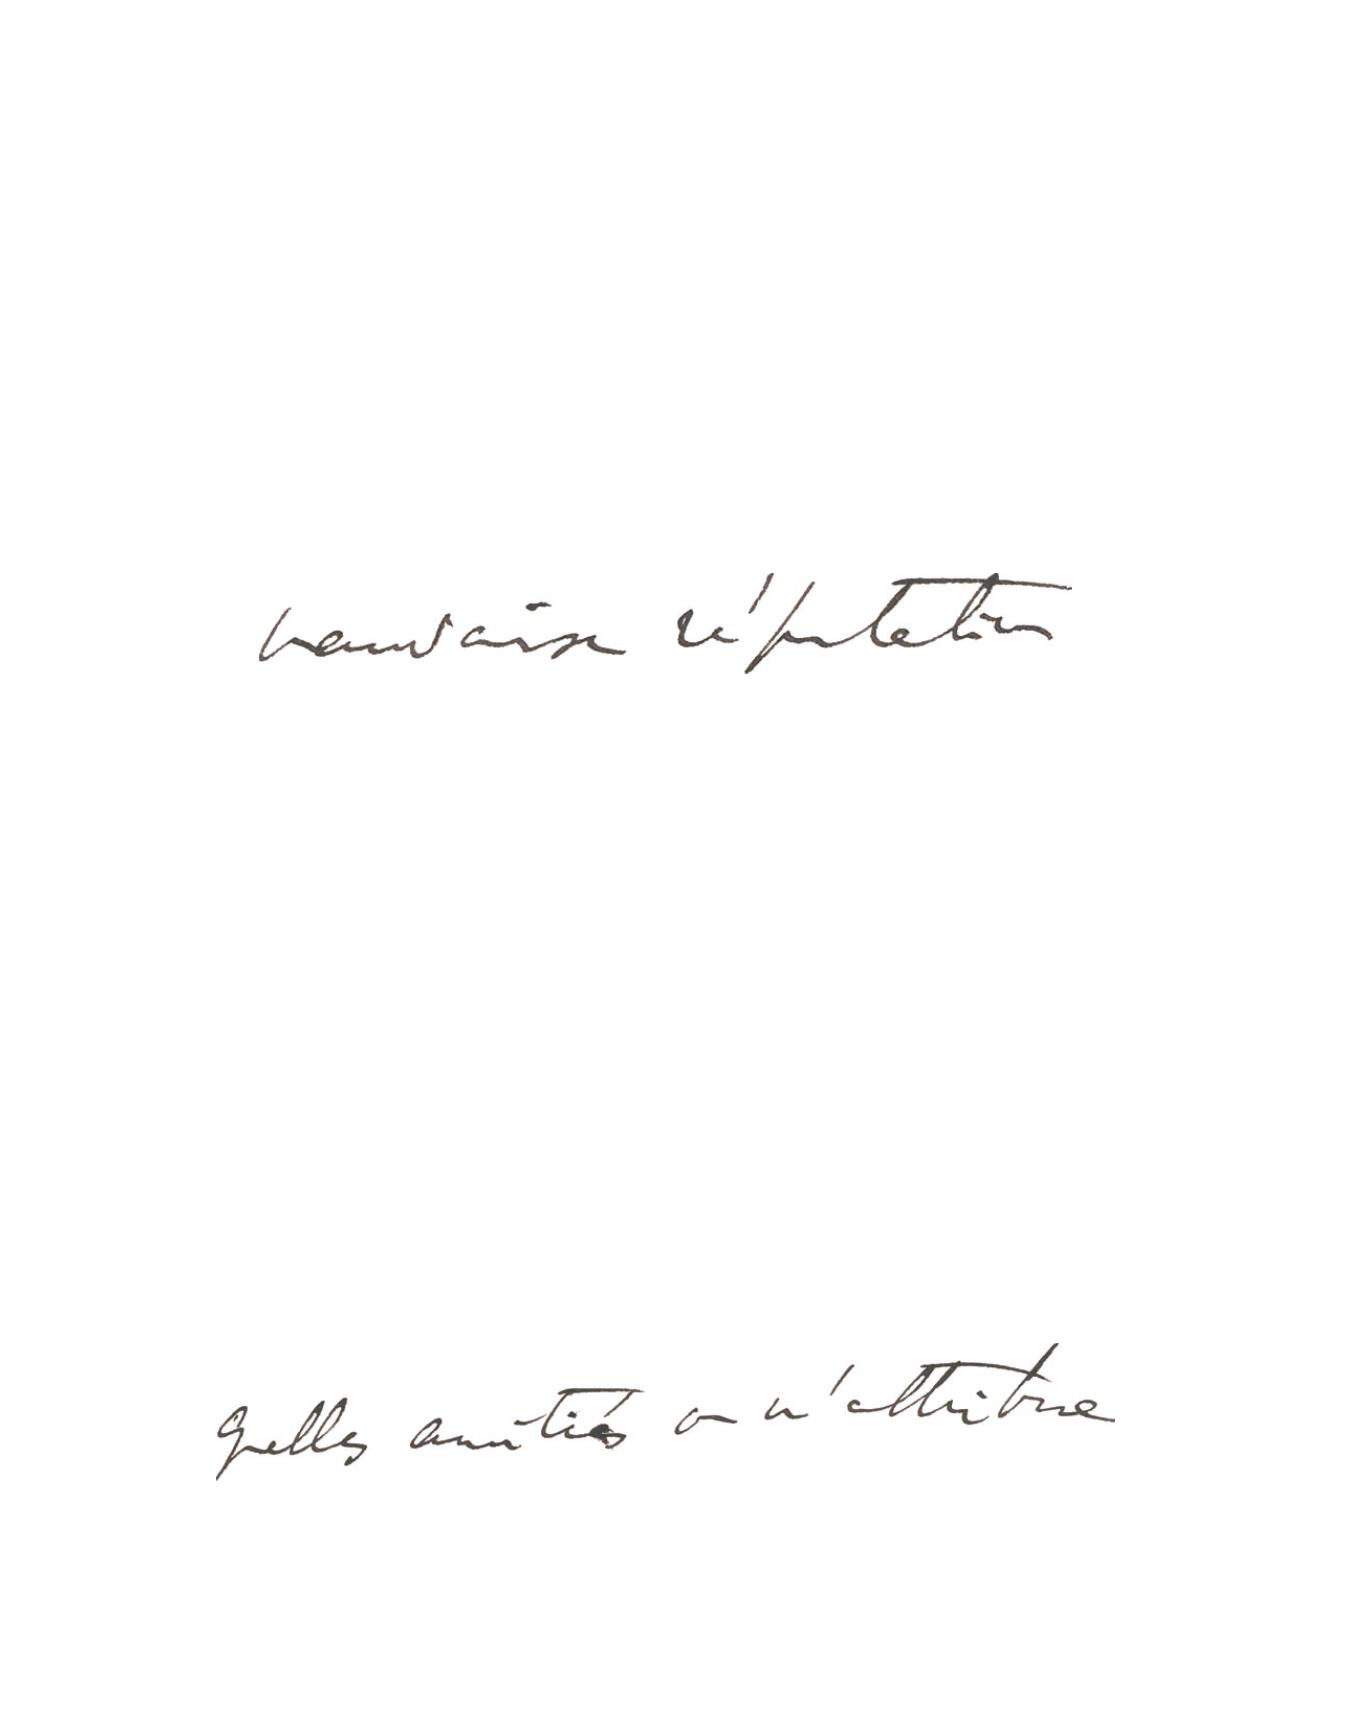 mauvaise réputation
quelles amitiés on m'attribue